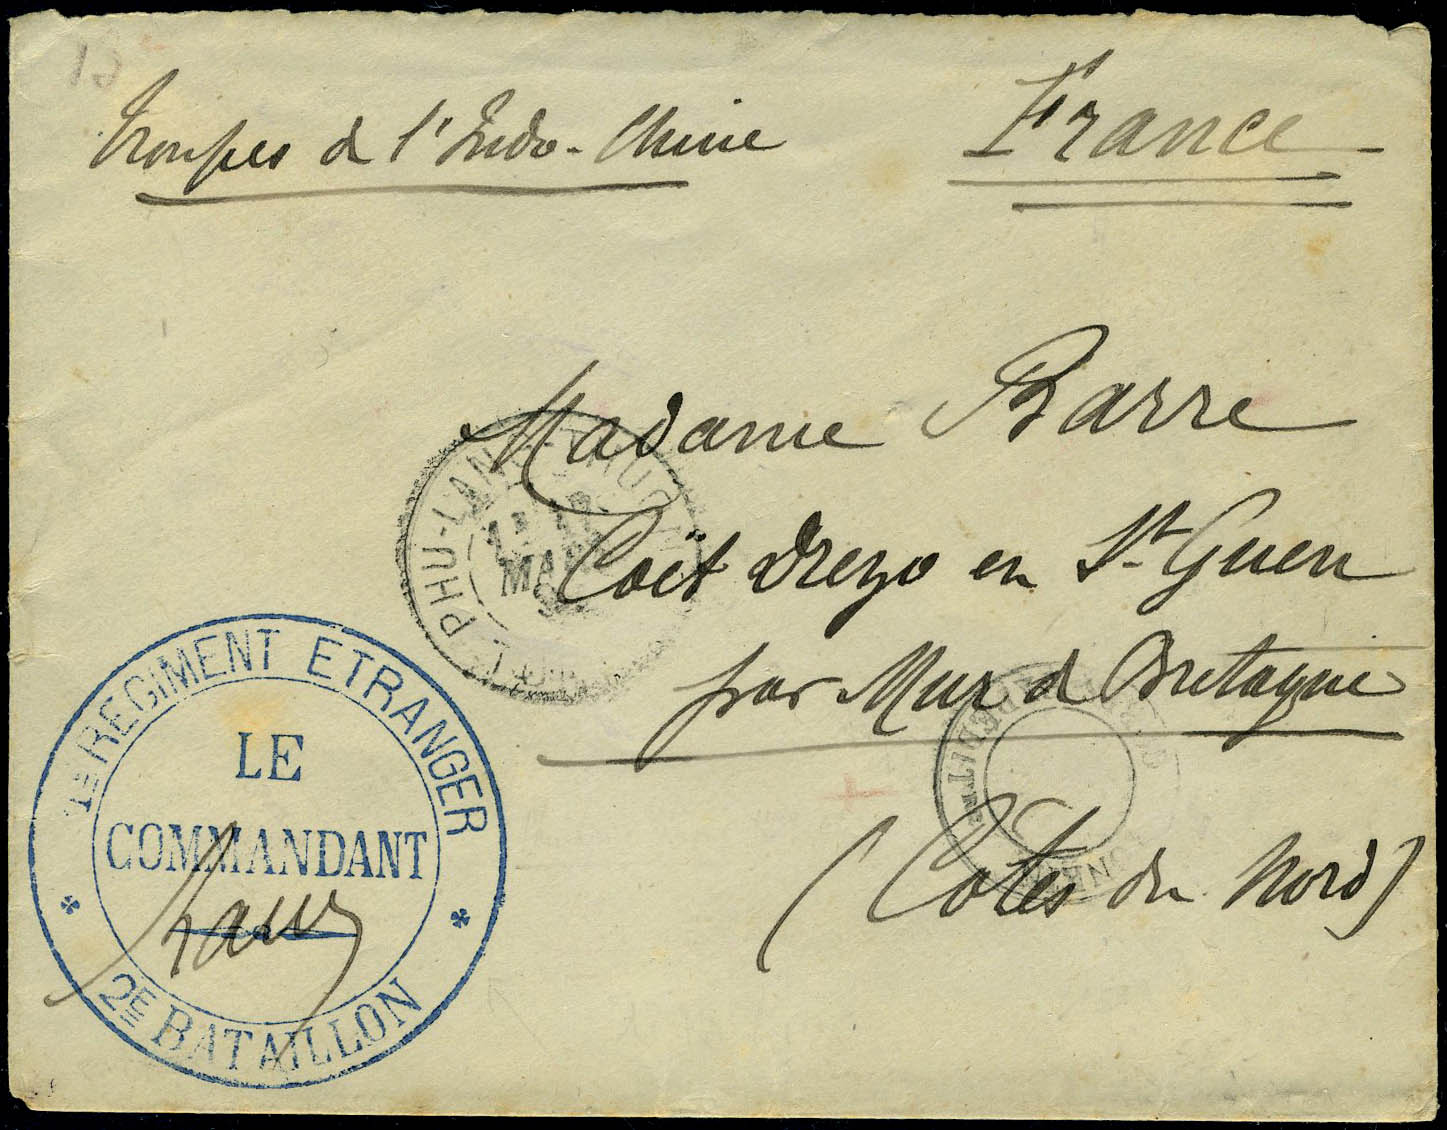 Troupes de l'Indo-Chine
France
Madame Barre
Coët Drezo en St Guen
par Mur de Bretagne
(Cotes du Nord)
PHU-LANG-THUONG
MARS
1E REGIMENT ETRANGER
LE
COMMANDANT
2E BATAILLON